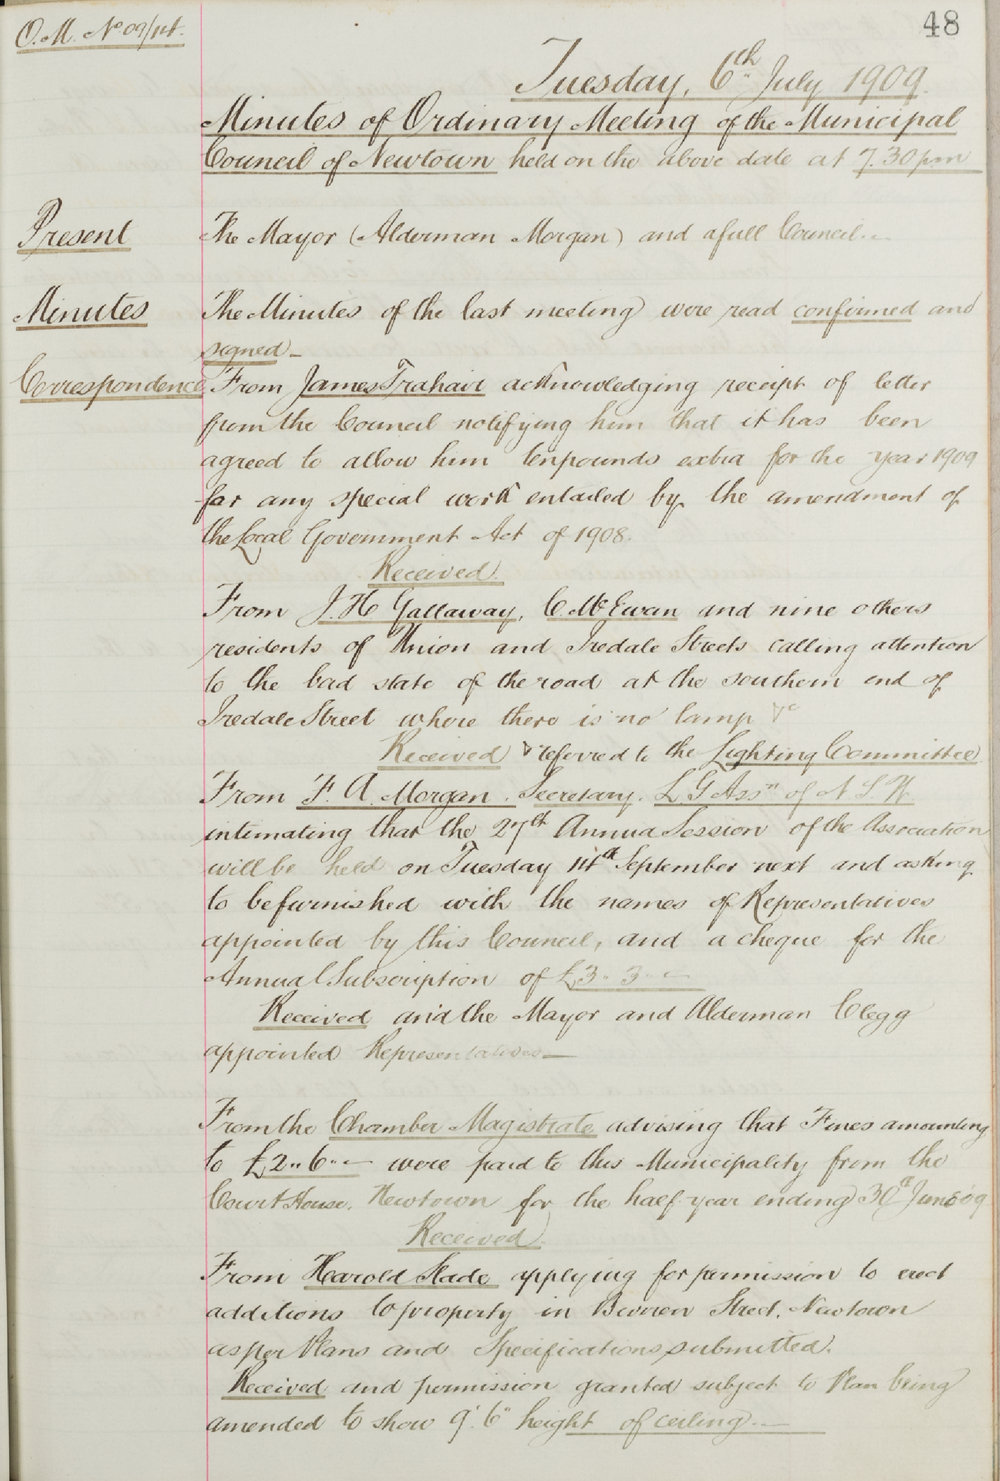 O.M. No 09/14.
48
Tuesday, 6th July 1909.
Minutes of Ordinary Meeting of the Municipal
Council of Newtown held on the above date at 7.30 pm
Present
The Mayor (Alderman Morgan) and a full Council.
Minutes
The Minutes of the last meeting were read confirmed and
signed
Correspondence
From James Trahair acknowledging receipt of letter
from the Council notifying him that it has been
agreed to allow him ten pounds extra for the year 1909
for any special work entailed by the amendment of
the Local Government Act of 1908.
Received.
From J. H Gallaway, C McEwan and nine others
residents of Union and Iredale Streets calling attention
to the bad state of the road at the southern end of
Iredale Street where there is no lamp &c
Received & referred to the Lighting Committee
From F. A. Morgan. Secretary. L G Assn of N S W.
intimating that the 27th Annual Session of the Association
will be held on Tuesday 14th September next and asking
to be furnished with the names of Representatives
appointed by this Council, and a cheque for the
Annual Subscription of £3. 3. —
Received and the Mayor and Alderman Clegg
appointed Representatives —
From the Chamber Magistrate advising that Fines amounting
to £2.. 6.. — were paid to this Municipality from the
Court House. Newtown for the half-year ending 30th June 09
Received.
From Harold Slade applying for permission to erect
additions to property in Bucknell Street. Newtown
as per Plans and Specifications submitted.
Received and permission granted subject to Plan being
amended to show 9'. 6" height of ceiling. —